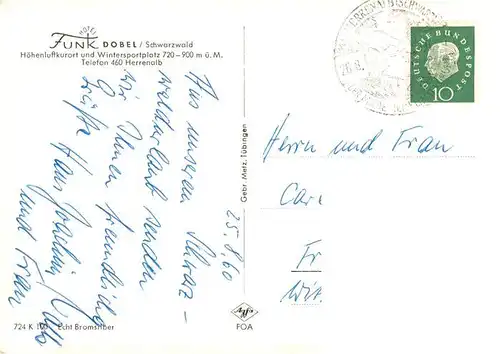 HOTEL
FUNK DOBEL / Schwarzwald
Höhenluftkurort und Wintersportplatz 720 – 900 m ü. M.
Telefon 460 Herrenalb
Aus unserem Schwarz-
waldurlaub senden
wir Ihnen freundliche
Grüße Hans Joachim
und Frau
25.8.60
724 K 103 Echt Bromsilber
Gebr. Metz, Tübingen
Agfa
FOA
DEUTSCHE BUNDESPOST
10
Herrn und Frau
Car
Fr
Wit